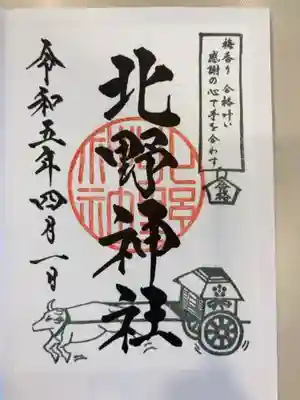 梅香り 合格叶い
感謝の心で手を合わす
合格
北野神社
北野神社
令和五年四月一日